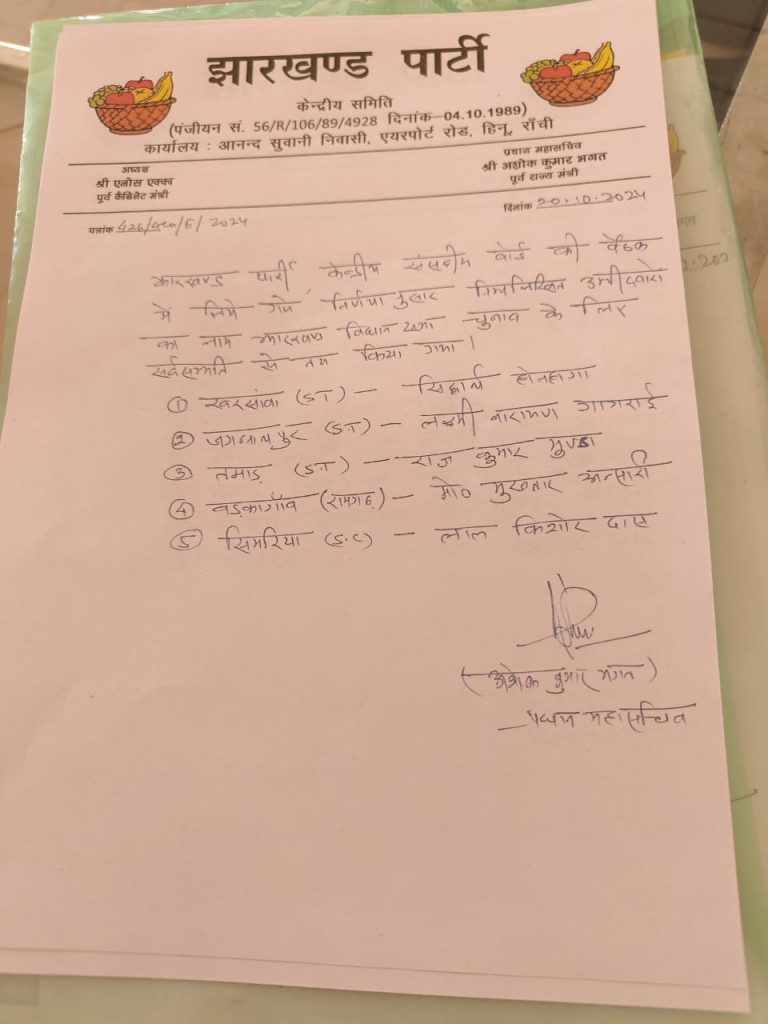 झारखण्ड पार्टी
केन्द्रीय समिति
(पंजीयन सं. 56/R/106/89/4928 दिनांक–04.10.1989)
कार्यालय : आनन्द सुवानी निवासी, एयरपोर्ट रोड, हिनू, राँची
अध्यक्ष
श्री एनोस एक्का
पूर्व कैबिनेट मंत्री
प्रधान महासचिव
श्री अशोक कुमार भगत
पूर्व राज्य मंत्री
पत्रांक 2024
दिनांक 20.10.2024
झारखण्ड पार्टी, केन्द्रीय संसदीय बोर्ड की बैठक
में लिये गये निर्णयानुसार निम्नलिखित उम्मीदवारों
का नाम झारखण्ड विधान सभा चुनाव के लिए
सर्वसम्मति से तय किया गया।
① खरसांवा (ST) – सिद्धार्थ होनहागा
② जगन्नाथपुर (ST) – लक्ष्मी नारायण गागराई
③ तमाड़ (ST) – राज कुमार मुण्डा
④ बड़कागाँव (रामगढ़) – मो० मुखतार अन्सारी
⑤ सिमरिया (S.C) – लाल किशोर दास
(अशोक कुमार भगत)
प्रधान महासचिव